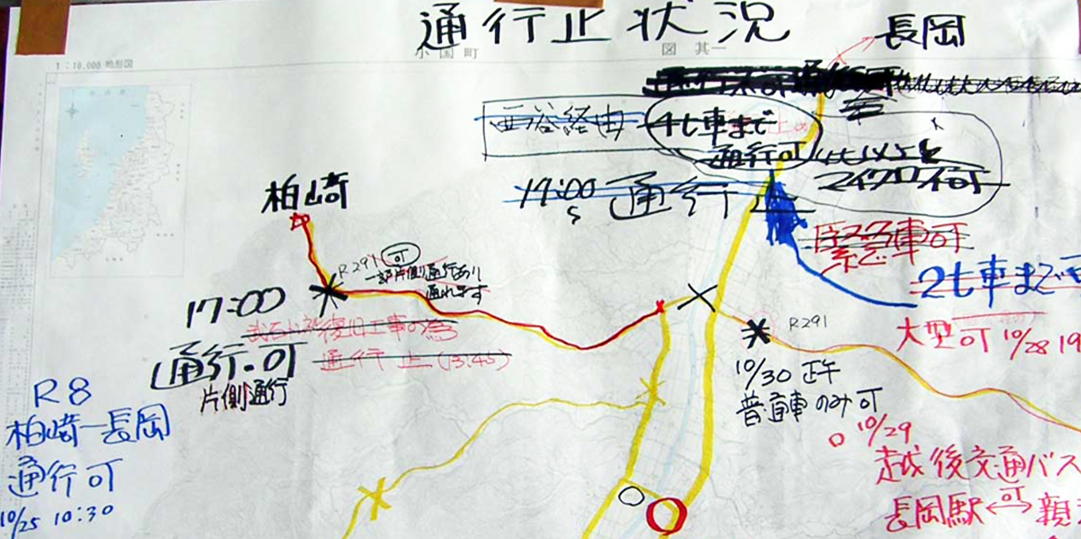 通行止状況
長岡
1:10,000 地形図
小国町
図 其一
西谷経由
4t車まで
通行可
マイクロ不可
17:00
通行止
柏崎
R291 可
一部片側通行あり
通れます
17:00
通行可
片側通行
通行止 (13:45)
緊急車可
2t車まで
大型可 10/28 19
R291
10/30 正午
普通車のみ可
R8
柏崎―長岡
通行可
10/25 10:30
10/29
越後交通バス
長岡駅⇔可